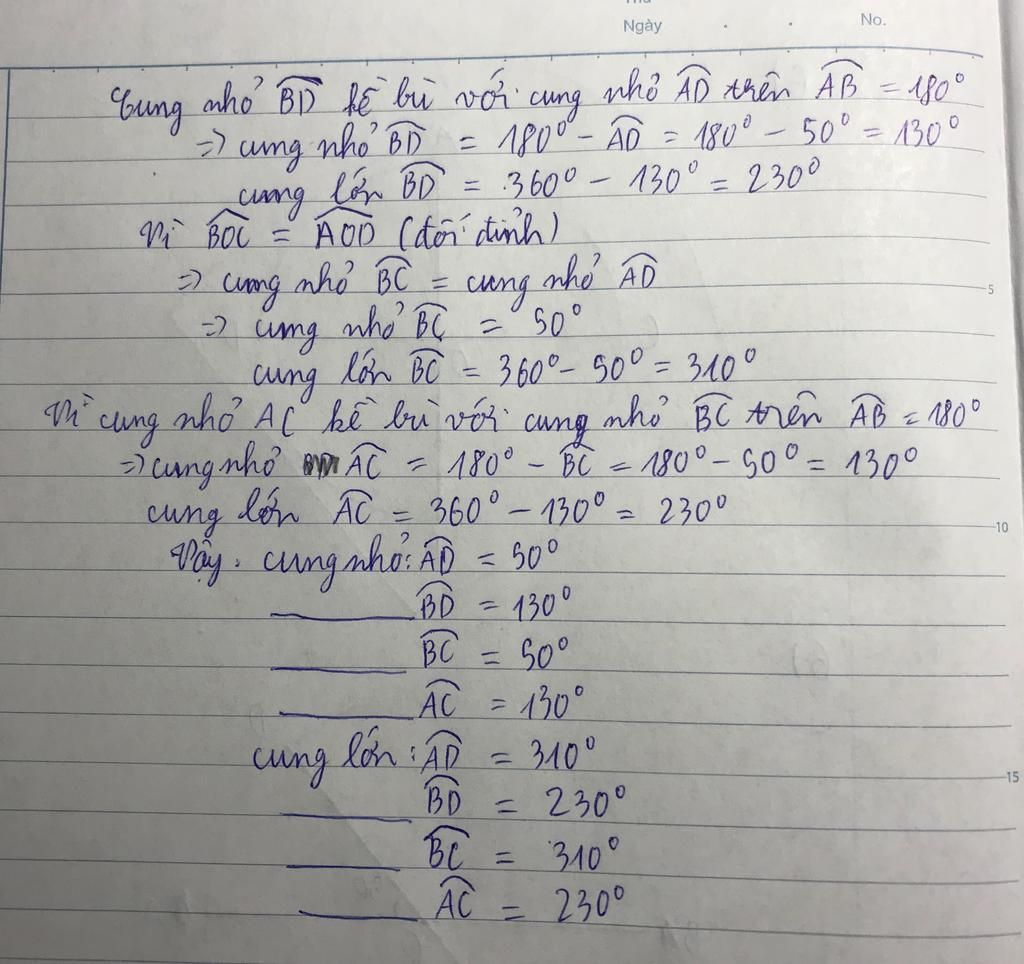 Thứ
Ngày . . No.
Cung nhỏ BD kề bù với cung nhỏ AD trên AB = 180°
=> cung nhỏ BD = 180° - AD = 180° - 50° = 130°
cung lớn BD = 360° - 130° = 230°
Vì BOC = AOD (đối đỉnh)
=> cung nhỏ BC = cung nhỏ AD
5
=> cung nhỏ BC = 50°
cung lớn BC = 360° - 50° = 310°
Vì cung nhỏ AC kề bù với cung nhỏ BC trên AB = 180°
=> cung nhỏ AC = 180° - BC = 180° - 50° = 130°
cung lớn AC = 360° - 130° = 230°
10
Vậy. cung nhỏ: AD = 50°
BD = 130°
BC = 50°
AC = 130°
cung lớn: AD = 310°
15
BD = 230°
BC = 310°
AC = 230°